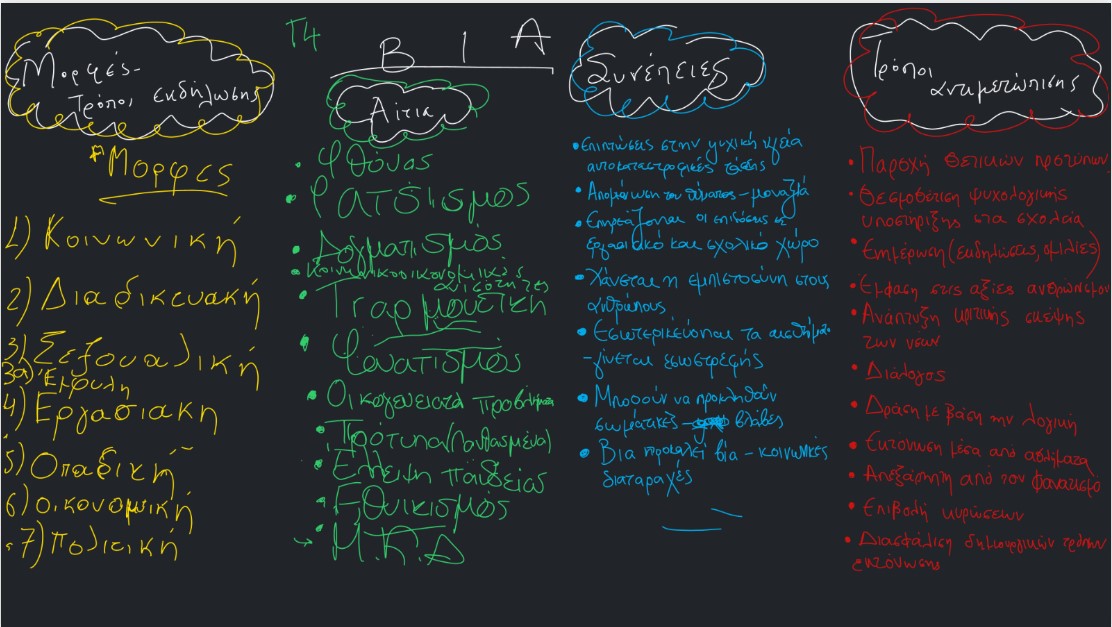 Τ4
ΒΙΑ
Μορφές-
Τρόποι εκδήλωσης
*Μορφες
1) Κοινωνική
2) Διαδικτυακή
3) Σεξουαλική
3α) Έμφυλη
4) Εργασιακη
5) Οπαδική
6) οικονομική
7) πολιτική
Αίτια
• Φθόνος
• Ρατσισμος
• Δογματισμός
• Κοινωνικοοικονομικές
ανισότητες
• Τραρμουστικη
• Φανατισμός
• Οικογενειατά προβλήματα
• Πρότυπα (λανθασμένα)
• Ελλειψη παιδείας
• Εθνικισμός
→ Μ.Κ.Δ
Συνέπειες
• Επιπτώσεις στην ψυχική υγεία
αυτοκαταστροφικές τάσεις
• Απομόνωση του θύματος - μοναξιά
• Επηρεάζονται οι επιδόσεις σε
εργασιακό και σχολικό χώρο
• Χάνεται η εμπιστοσύνη στους
ανθρώπους
• Εσωτερικεύονται τα αισθήματα
- γίνεται εσωστρεφής
• Μπορούν να προκληθούν
σωματικές βλάβες
• Βια προκαλεί βια - κοινωνικές
διαταραχές
Τρόποι
αντιμετώπισης
• Παροχή θετικών προτύπων
• Θεσμοθέτιση ψυχολογικής
υποστηριξης στα σχολεία
• Ενημέρωση (εκδηλώσεις, ομιλίες)
• Έμφαση στις αξίες ανθρωπισμου
• Ανάπτυξη κριτικής σκέψης
των νεων
• Διάλογος
• Δράση με βάση την λογική
• Εκτόνωση μέσα από αθλήματα
• Απεξάρτηση από τον φανατισμο
• Επιβολή κυρώσεων
• Διασφάλιση δημιουργικών τρόπων
εκτόνωσης